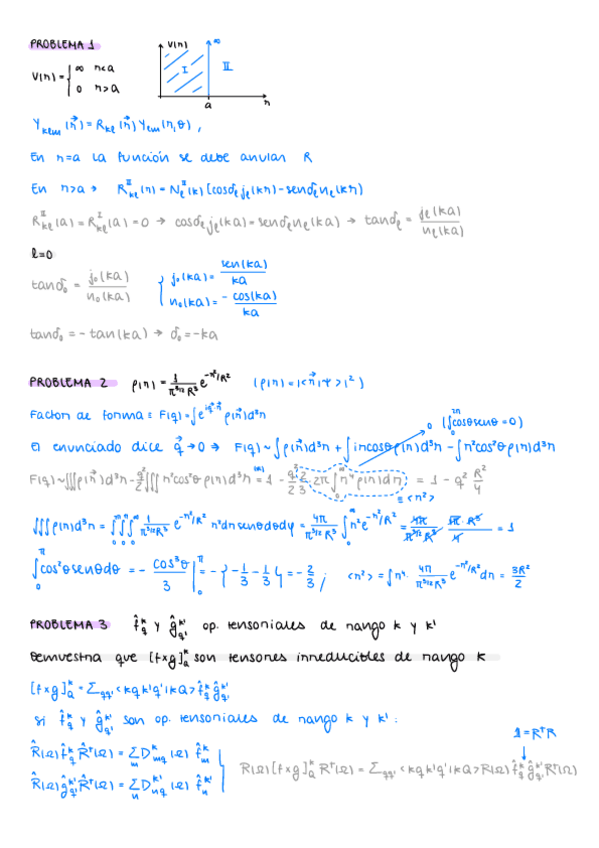 PROBLEMA 1
V(r) = { ∞ r<a
0 r>a
V(r) ∞
I II
a r
Ψkℓm (r⃗) = Rkℓ (r⃗) Yℓm (r,θ) ,
En r=a la función se debe anular R
En r>a → R^II_kℓ (r) = N^II_ℓ (k) [cosδℓ jℓ(kr) - senδℓ nℓ(kr)]
R^II_kℓ (a) = R^I_kℓ (a) = 0 → cosδℓ jℓ(ka) = senδℓ nℓ(ka) → tanδℓ = jℓ(ka) / nℓ(ka)
ℓ=0
tanδ₀ = j₀(ka) / n₀(ka) { j₀(ka) = sen(ka) / ka
n₀(ka) = - cos(ka) / ka
tanδ₀ = - tan(ka) → δ₀ = -ka
PROBLEMA 2 ρ(r) = 1/(π^3/2 R³) e^-r²/R² (ρ(r) = |<r⃗|Ψ>|²)
Factor de forma: F(q) = ∫e^iq⃗·r⃗ ρ(r⃗)d³r
0 (∫₀^2π cosθsenθ = 0)
El enunciado dice q⃗ → 0 → F(q) ~ ∫ρ(r⃗)d³r + ∫ircosθρ(r)d³r - ∫r²cos²θρ(r)d³r
F(q) ~ ∭ρ(r⃗)d³r - q²/2 ∭r²cos²θρ(r)d³r = 1 - q²/2 2/3 2π∫r⁴ρ(r)dr = 1 - q² R²/4
= <r²>
∭ρ(r)d³r = ∫₀∫₀∫₀ 1/(π^3/2 R³) e^-r²/R² r²dr senθdθdφ = 4π/(π^3/2 R³) ∫₀^∞ r²e^-r²/R² = 4π/(π^3/2 R³) √π·R³/4 = 1
∫₀^π cos²θsenθdθ = - cos³θ/3 |₀^π = -{-1/3 - 1/3} = -2/3 ; <r²> = ∫r⁴· 4π/(π^3/2 R³) e^-r²/R² dr = 3R²/2
PROBLEMA 3 f̂^k_q y ĝ^k'_q' op. tensoriales de rango k y k'
Demuestra que [f×g]^k_Q son tensores irreducibles de rango k
[f×g]^k_Q = Σqq' <kq k'q'|kQ> f̂^k_q ĝ^k'_q'
Si f̂^k_q y ĝ^k'_q' son op. tensoriales de rango k y k' :
1=R†R
R̂(Ω) f̂^k_q R̂†(Ω) = Σm D^k_mq (Ω) f̂^k_m
R̂(Ω) ĝ^k'_q' R̂†(Ω) = Σn D^k'_nq' (Ω) f̂^k'_n
R(Ω) [f×g]^k_Q R†(Ω) = Σqq' <kq k'q'|kQ> R(Ω) f̂^k_q ĝ^k'_q' R†(Ω)